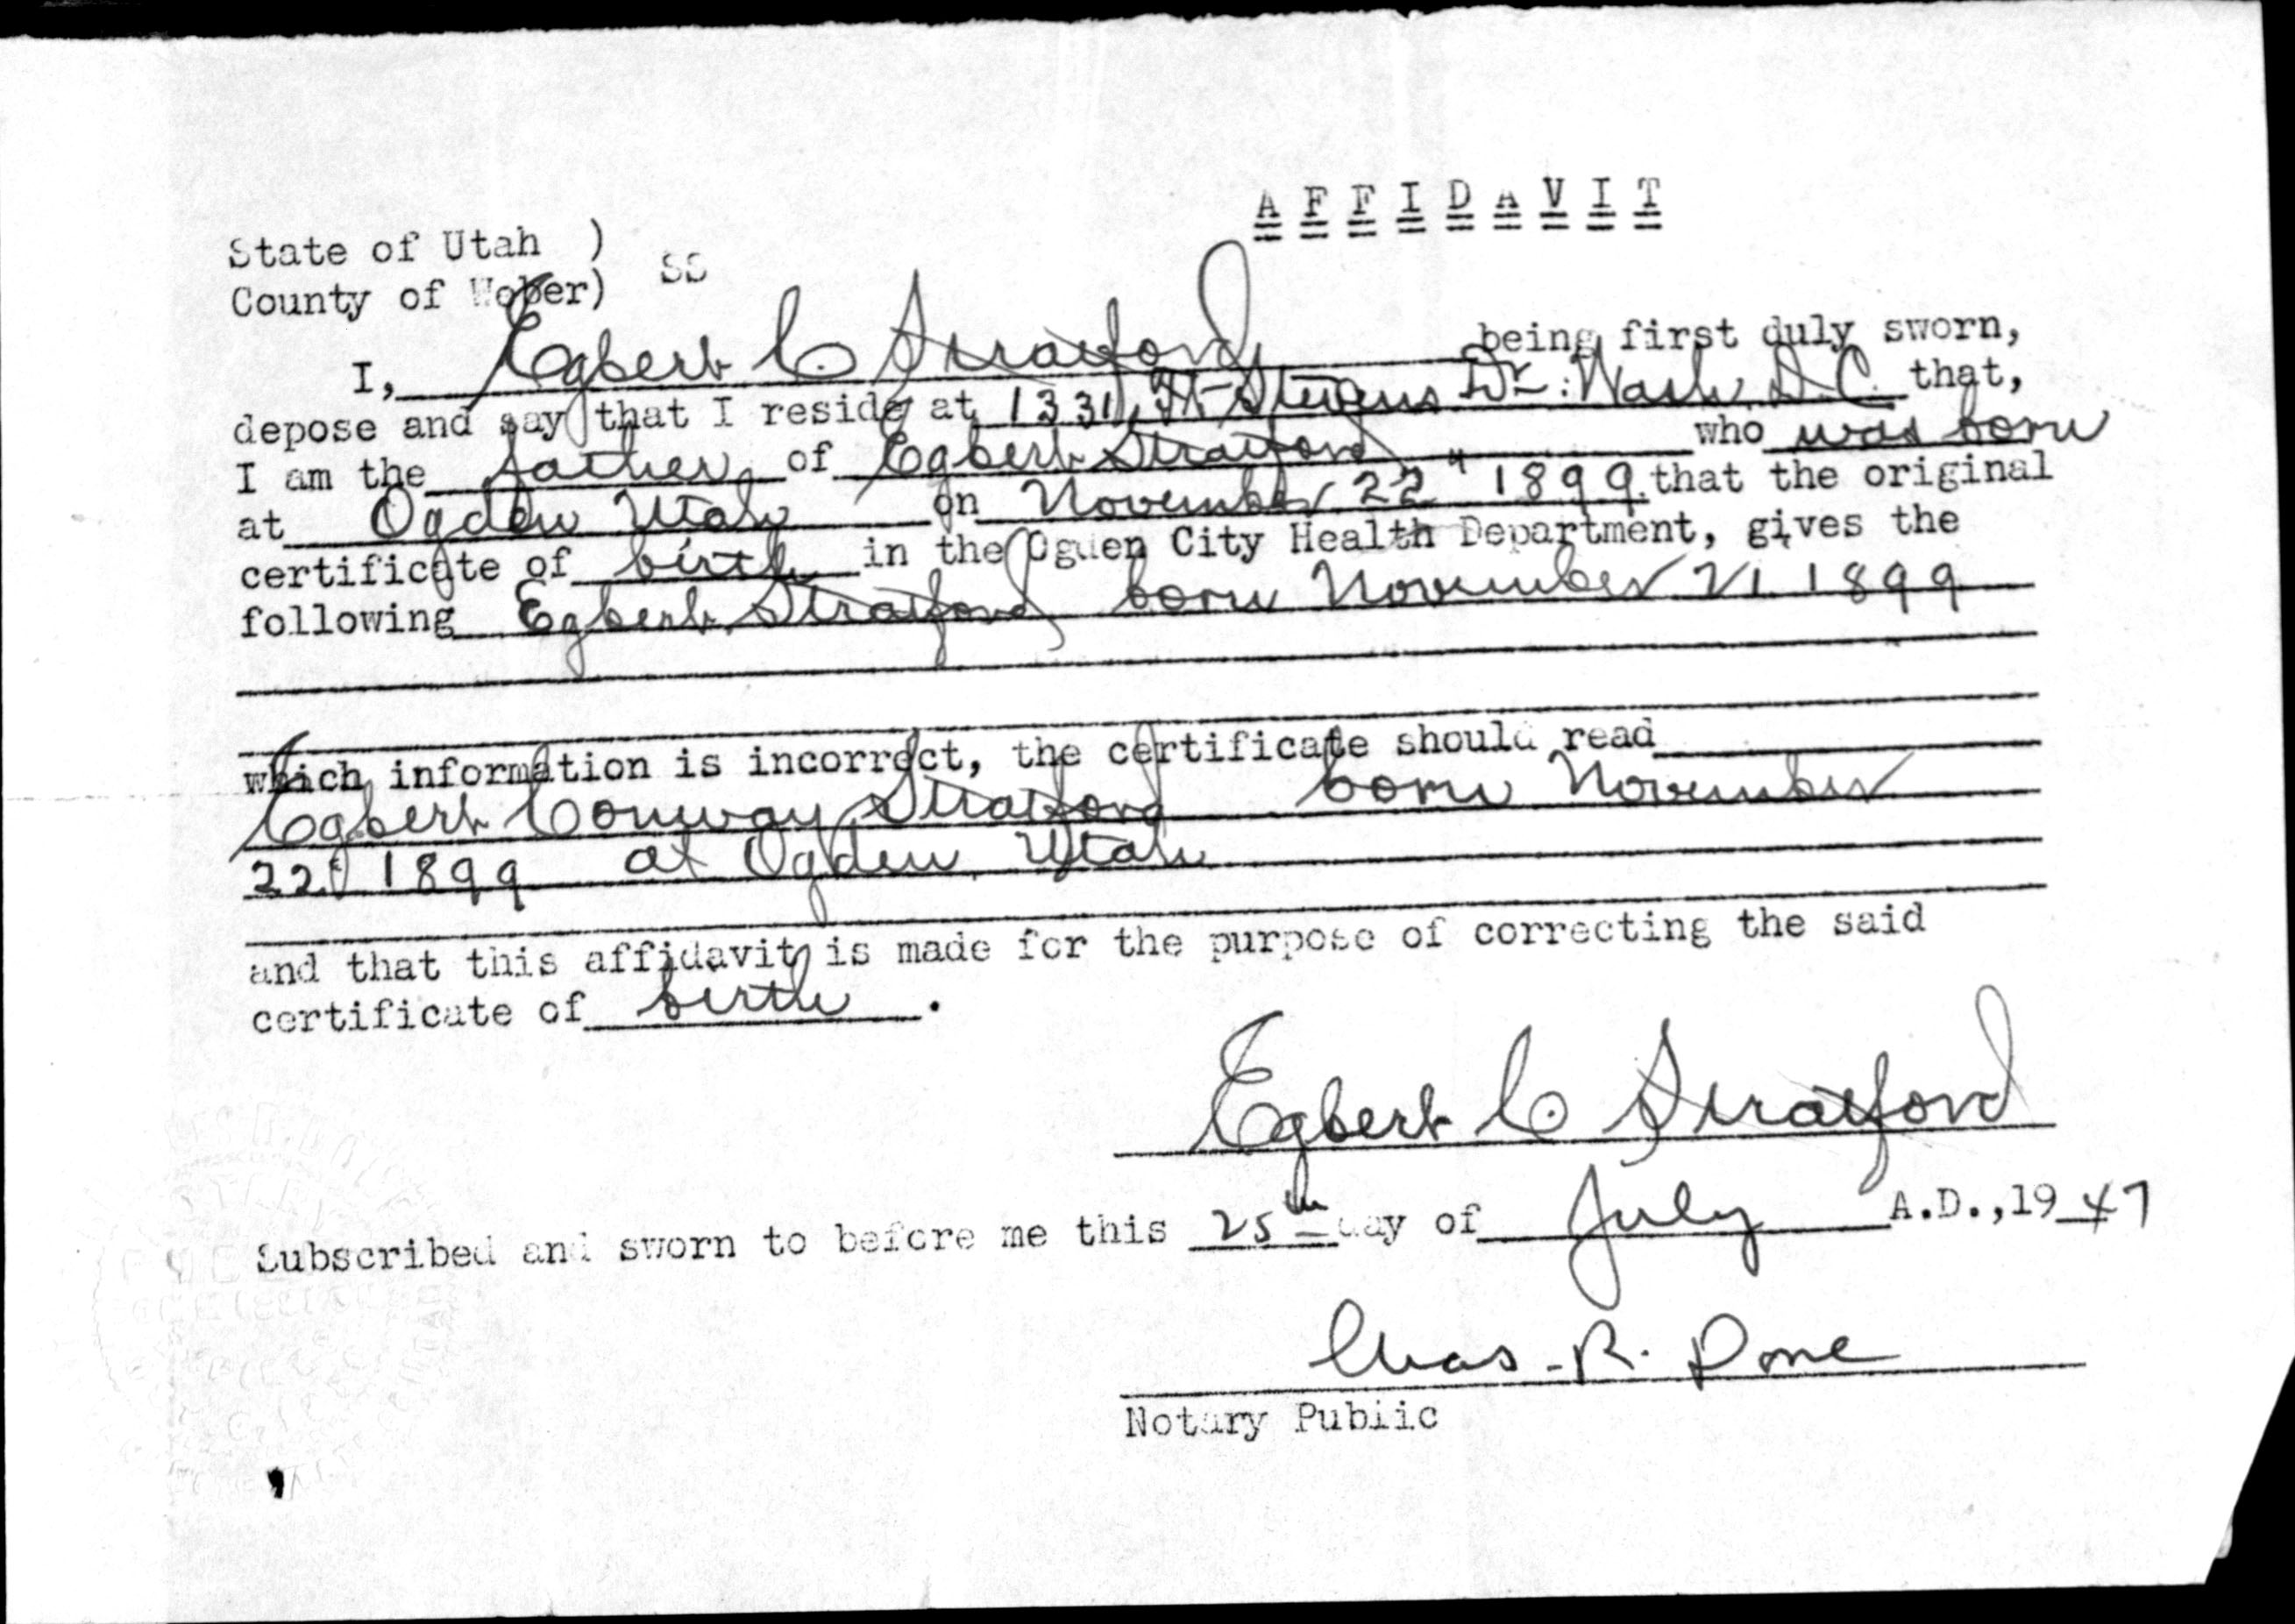 A F F I D A V I T
State of Utah )
County of Weber) SS
I, Egbert C Stratford being first duly sworn,
depose and say that I reside at 1331 Ft Stevens Dr. Wash. D.C. that,
I am the father of Egbert Stratford who was born
at Ogden Utah on November 22" 1899 that the original
certificate of birth in the Ogden City Health Department, gives the
following Egbert Stratford born November 21 1899
which information is incorrect, the certificate should read
Egbert Conway Stratford born November
22 1899 at Ogden, Utah
and that this affidavit is made for the purpose of correcting the said
certificate of birth .
Egbert C Stratford
Subscribed and sworn to before me this 25th day of July A.D.,1947
Chas. R.
Notary Public